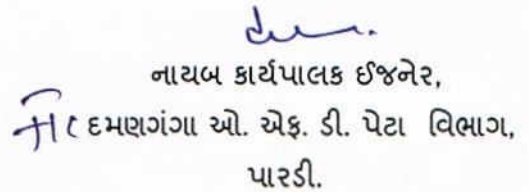 નાયબ કાર્યપાલક ઈજનેર,
દમણગંગા ઓ. એફ. ડી. પેટા વિભાગ,
પારડી.